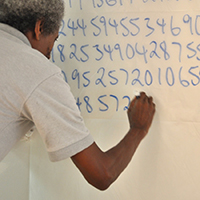 244594553469
82534904287 55
95257201065
48572